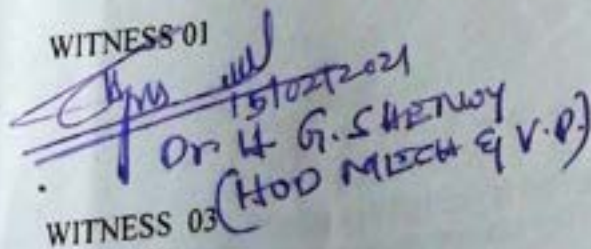 WITNESS 01
15/02/2021
Dr. H G. SHENOY
(HOD MECH & V.P.)
WITNESS 03